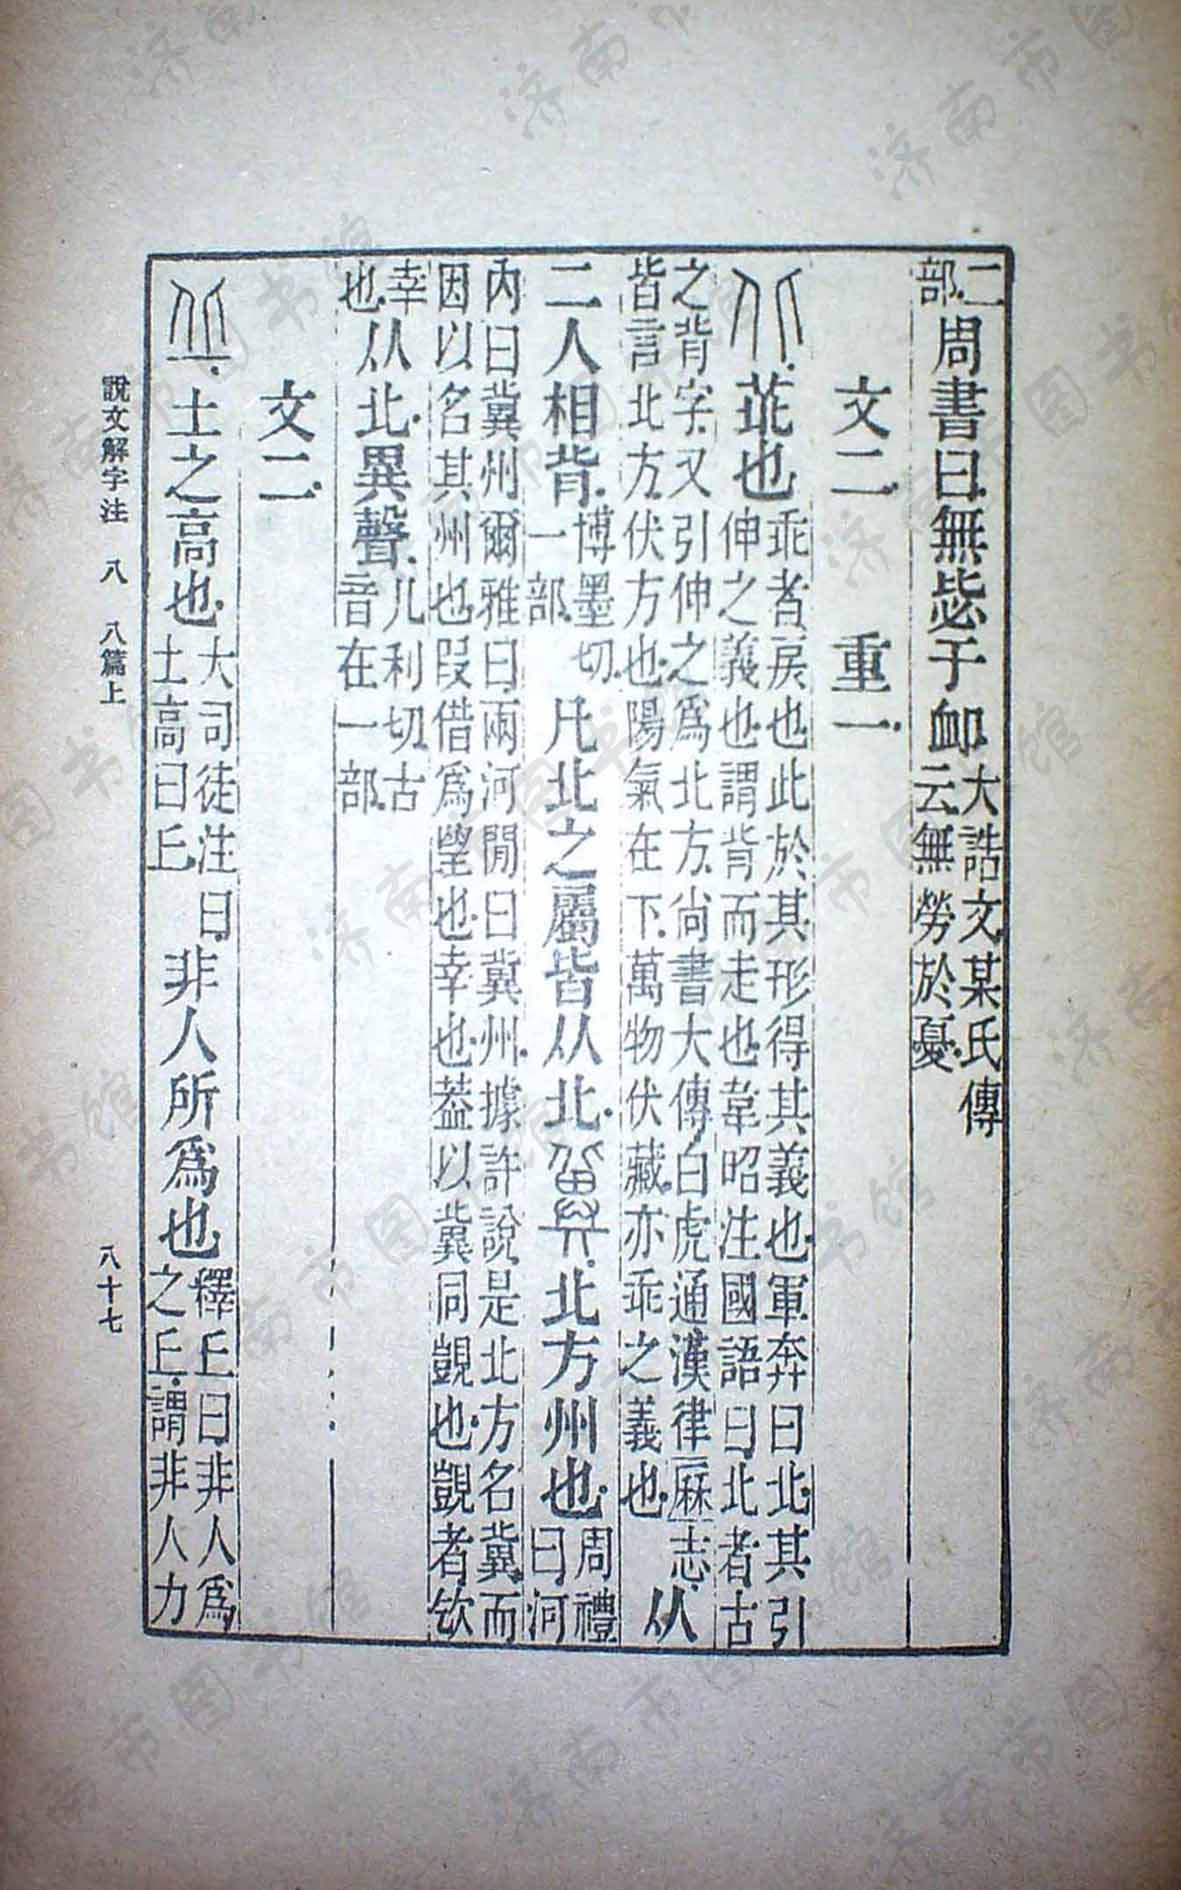 二部周書曰無毖于卹大誥文某氏傳云無勞於憂
文二 重一
北 𠦬也乖者戾也此於其形得其義也軍奔曰北其引伸之義也謂背而走也韋昭注國語曰北者古
之背字又引伸之爲北方尚書大傳白虎通漢律厤志皆言北方伏方也陽氣在下萬物伏藏亦乖之義也从
二人相背博墨切一部凡北之屬皆从北冀北方州也周禮曰河
內曰冀州爾雅曰兩河閒曰冀州據許說是北方名冀而因以名其州也叚借爲望也幸也葢以冀同覬也覬者㰟
幸也从北異聲几利切古音在一部
文二
丘土之高也大司徒注曰土高曰丘非人所爲也釋丘曰非人爲之丘謂非人力
說文解字注 八 八篇上
八十七
济南市图书馆